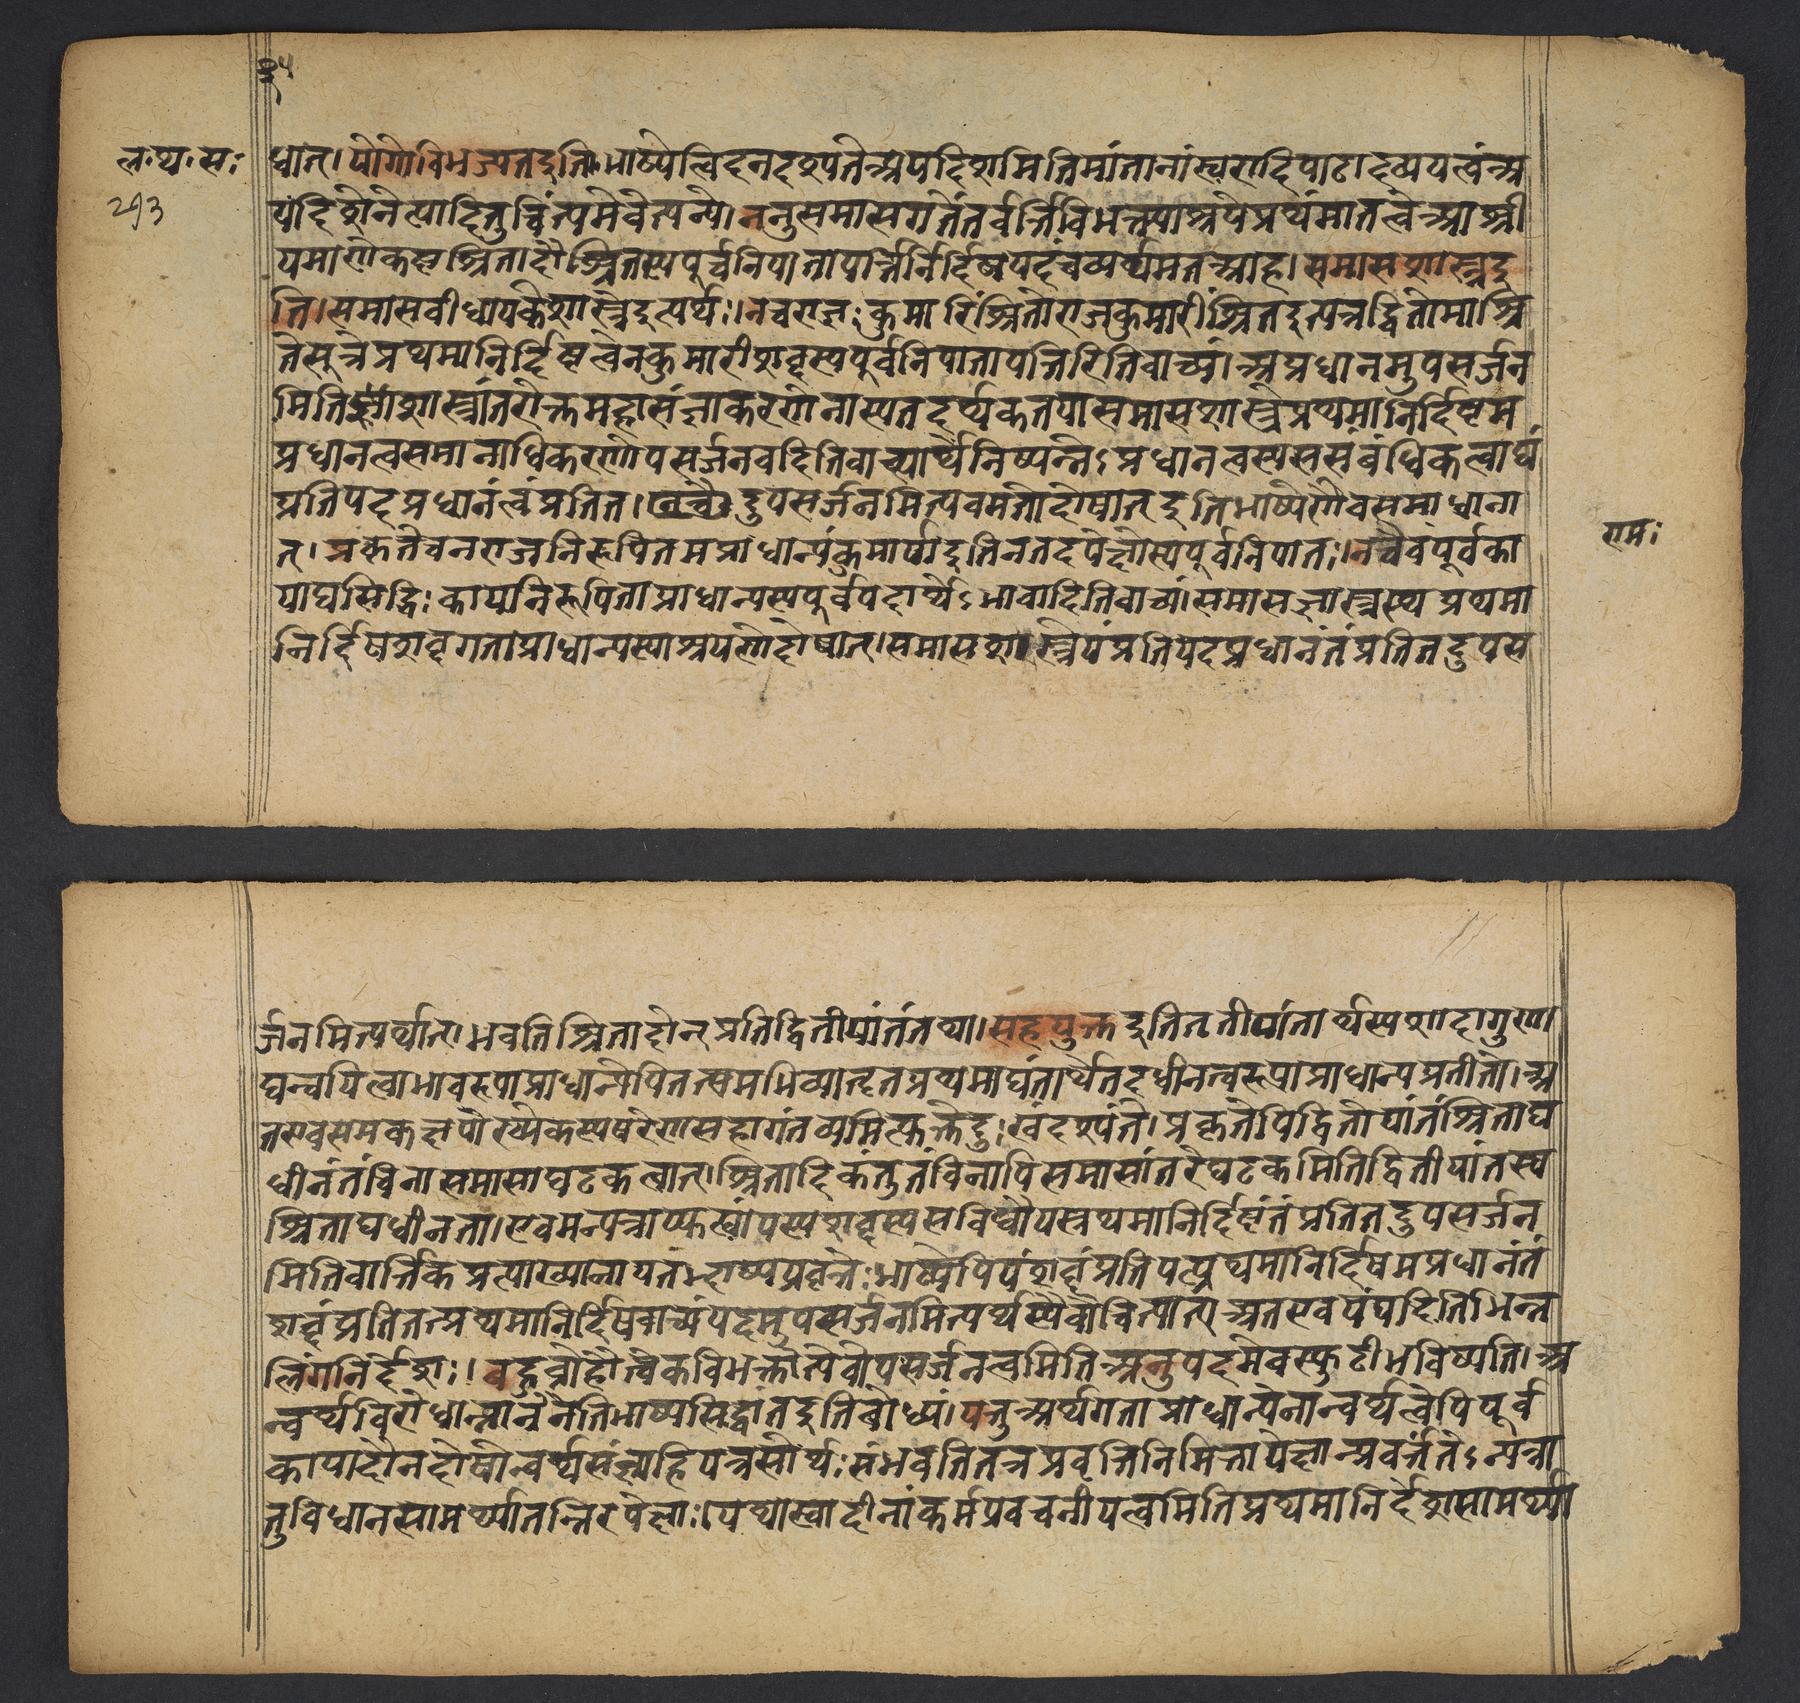 ३५
ल॰ घ॰ स॰
293
धात्। योगोविभज्यतइति। भाष्येत्विदन दृश्यतेअपदिशमितिमांतानांस्वरादिपाठादव्ययत्वंअ
पदिशेनेत्यादितुचिंत्यमेवेत्यन्ये। ननुसमासगतेतर्वर्त्तिविभक्त्याश्रयेप्रथमातत्वेआश्री
यमाणेकष्टश्रितादौश्रितस्यपूर्वनिपातापत्तिर्निर्दिष्टपदंचव्यर्थमतआह। समासशास्त्रइ
ति। समासवीधायकेशास्त्रेइत्यर्थः। नचराज्ञः कुमारिंश्रितोराजकुमारीश्रितइत्यत्रद्वितीमाश्रि
तेसूत्रेप्रथमानिर्दिष्टत्वेनकुमारीशब्दस्यपूर्वनिपातापत्तिरितिवाच्यं। अप्रधानमुपसर्जन
मितिशास्त्रांतरोक्तमहासंज्ञाकरणेनास्यतदर्थकतयासमासशास्त्रेप्रथमानिर्दिष्टम
प्रधानत्वसमानाधिकरणोपसर्जनवदितिवाच्यार्थेनिष्पन्नेऽप्रधानत्वस्यससंबंधिकत्वाद्यं
प्रतियदप्रधानंत्वंप्रतित। दुपसर्जनमित्यवमतोदोषात् इतिभाष्येणैवसमाधाना
त्। प्रकृतेचनराजनिरूपितमप्राधान्यंकुमार्याइतिनतदपेक्षास्यपूर्वनिपातः। नचैवंपूर्वका
याद्यसिद्धिः कायनिरूपिताप्राधान्यस्यपूर्वपदार्थेऽभावादितिवाच्यं। समासशास्त्रस्थप्रथमा
निर्दिष्टशब्दगताप्राधान्यस्याश्रयणेदोषात्। समासशास्त्रेयंप्रतियदप्रधानंतंप्रतितदुपस
राम॰
र्जनमित्यर्थात्। भवतिश्रितादीन्प्रतिद्वितीयांतंतथा। सहयुक्तइतितृतीयांतार्थस्यशादागुणा
द्यन्वयित्वाभावरूपाप्राधान्येपितत्समभिव्याहृतप्रथमाद्यंतार्थेतदधीनत्वरूपाप्राधान्यप्रतीतो। अ
तएवसमकक्षयोरप्येकस्यषरेणसहागंतव्यमित्युक्तेदुःखंदृश्यंते। प्रकृतेपिद्वितीयांतंश्रिताद्य
धीनंतंविनासमासाघटकत्वात्। श्रितादिकंतुतंविनापिसमासांतरेघटकमितिद्वितीयांतस्य
श्रिताद्यधीनता। एवमन्यत्राप्यूह्यंयस्यशब्दस्यसविधौयस्प्रथमानिर्दिष्टंतंप्रतितदुपसर्जन
मितिवार्त्तिकप्रत्याख्यानायतभाष्यप्रवृत्तेः। भाष्येपियंशब्दंप्रतियत्प्रथमानिर्दिष्टमप्रधानंतं
शब्दंप्रतितत्प्रथमानिर्दिष्टवाच्यंपदमुपसर्जनमित्यर्थस्यैवौचित्यात्। अतएवयंयदितिभिन्न
लिंगनिर्देशः। बहुव्रीहौत्वेकविभक्तौत्येवोपसर्जनत्वमितिअनुपदमेवस्फुटीभविष्यति। अ
न्वर्थविरोधान्नानेनेतिभाष्यसिद्धांतइतिबोध्यं। यत्तुअर्थगताप्राधान्येनान्वर्थत्वेपिपूर्व
कायादौनदोषोन्वर्थसंज्ञाहियत्रसोर्थः संभवतितत्रप्रवृत्तिनिमित्तापेक्षाप्रवर्त्ततेऽन्यत्रा
तुविधानसामर्थ्यात्तन्निरपेक्षा। यथास्वादीनांकर्मप्रवचनीयत्वमितिप्रथमानिर्देशसामर्थ्या